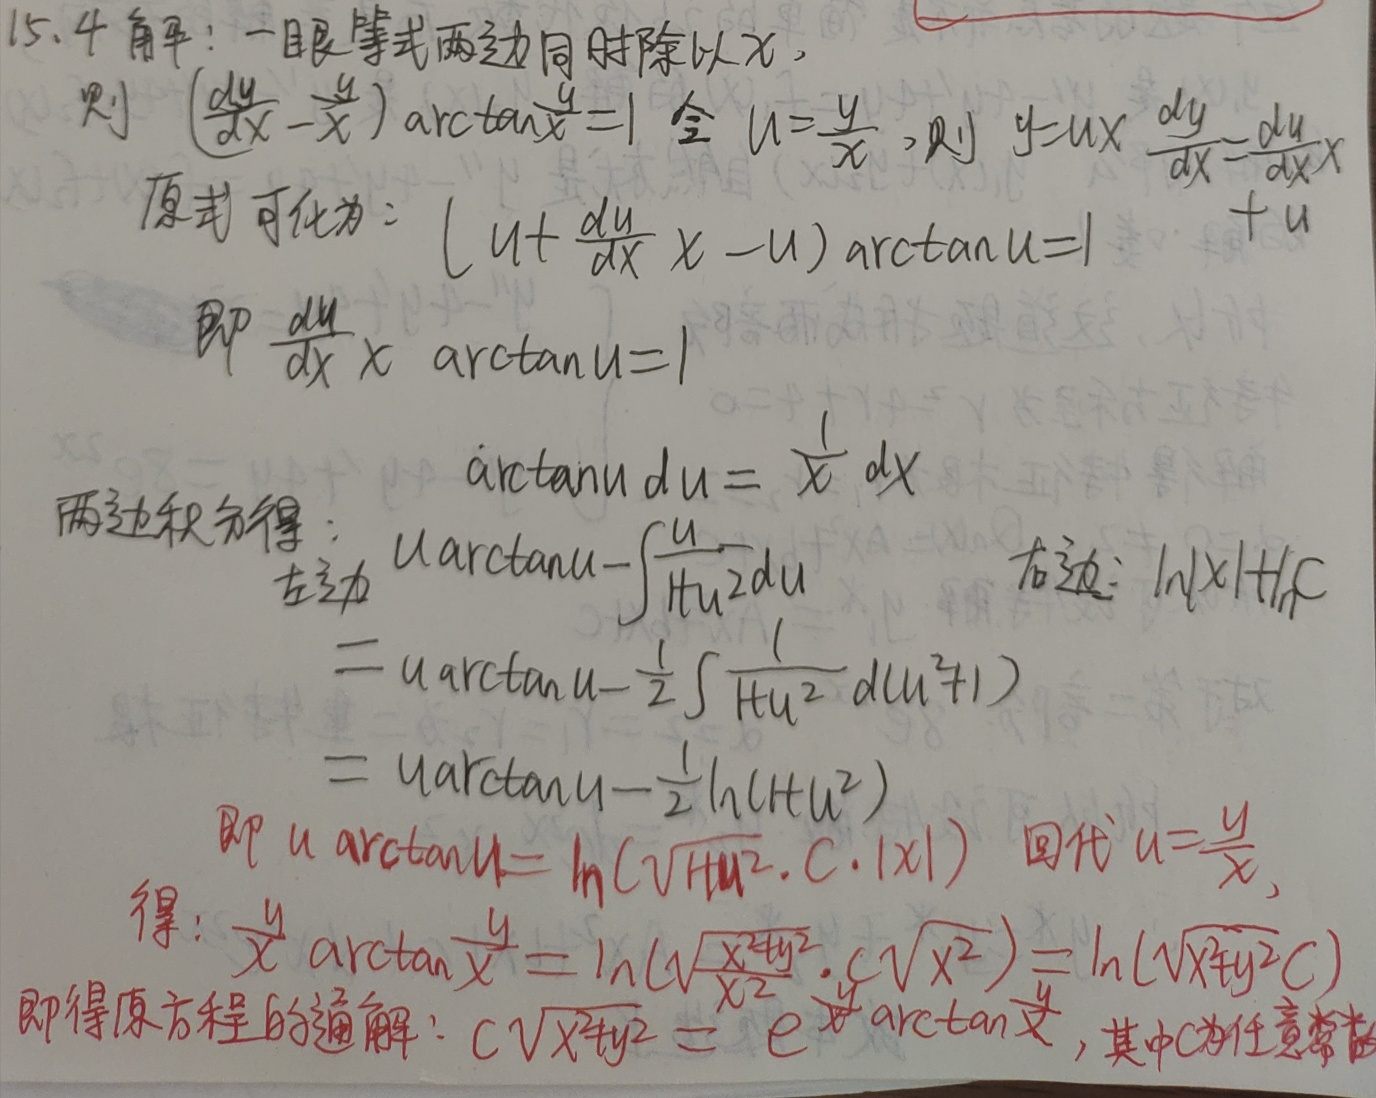 15.4 解: 一眼等式两边同时除以x,
则 (dy/dx - y/x) arctan y/x = 1 令 u = y/x, 则 y=ux dy/dx = du/dx x + u
原式可化为: (u + du/dx x - u) arctan u = 1
即 du/dx x arctan u = 1
arctan u du = 1/x dx
两边积分得:
左边 u arctan u - ∫ u/(1+u²) du 右边: ln|x|+lnC
= u arctan u - 1/2 ∫ 1/(1+u²) d(u²+1)
= u arctan u - 1/2 ln(1+u²)
即 u arctan u = ln(√(1+u²)·C·|x|) 回代 u = y/x,
得: y/x arctan y/x = ln(√((x²+y²)/x²)·C√(x²)) = ln(√(x²+y²) C)
即得原方程的通解: C√(x²+y²) = e^(y/x arctan y/x), 其中C为任意常数